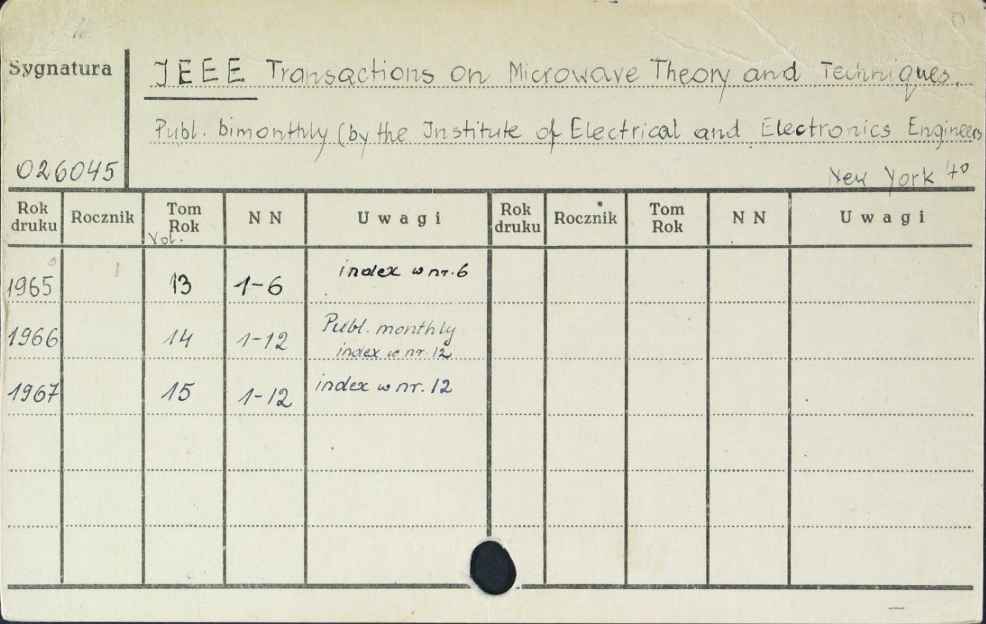 Sygnatura
IEEE Transactions on Microwave Theory and Techniques.
Publ. bimonthly (by the Institute of Electrical and Electronics Engineers
026045
New York 40
Rok druku Rocznik Tom Rok N N Uwagi Rok druku Rocznik Tom Rok N N Uwagi
Vol.
1965 13 1-6 index w nr. 6
1966 14 1-12 Publ. monthly
index w nr. 12
1967 15 1-12 index w nr. 12